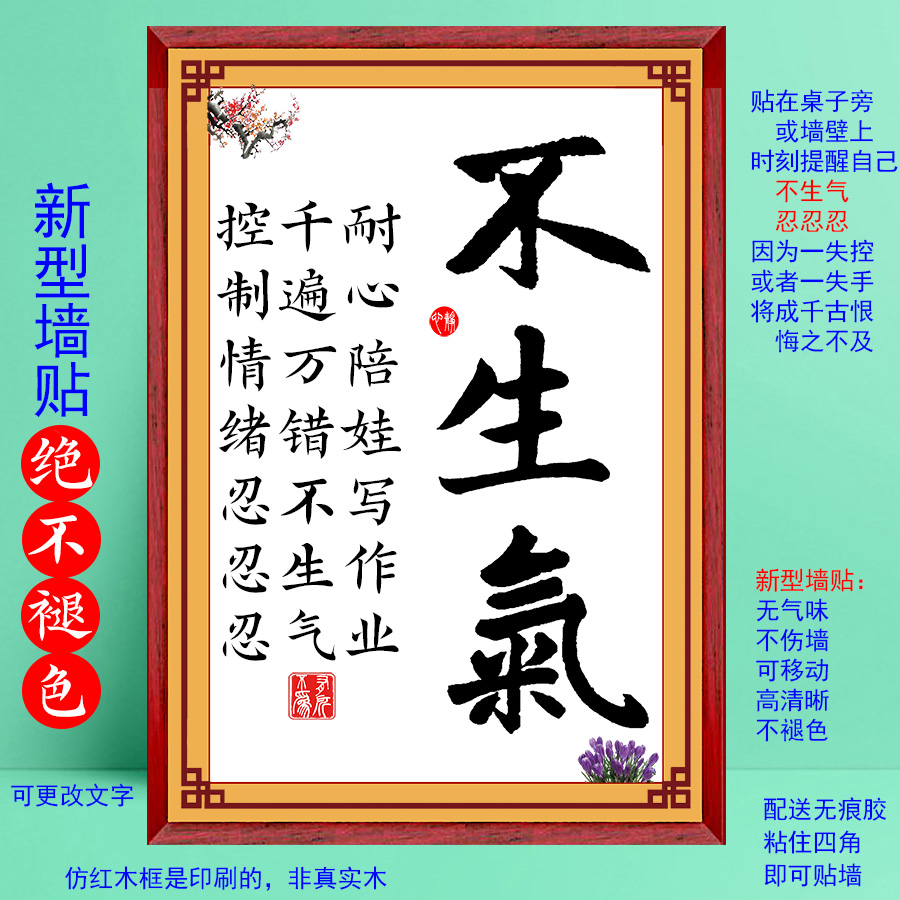 不生氣
耐心陪娃写作业
千遍万错不生气
控制情绪忍忍忍
新型墙贴
绝不褪色
贴在桌子旁
或墙壁上
时刻提醒自己
不生气
忍忍忍
因为一失控
或者一失手
将成千古恨
悔之不及
新型墙贴：
无气味
不伤墙
可移动
高清晰
不褪色
可更改文字
配送无痕胶
粘住四角
即可贴墙
仿红木框是印刷的，非真实木